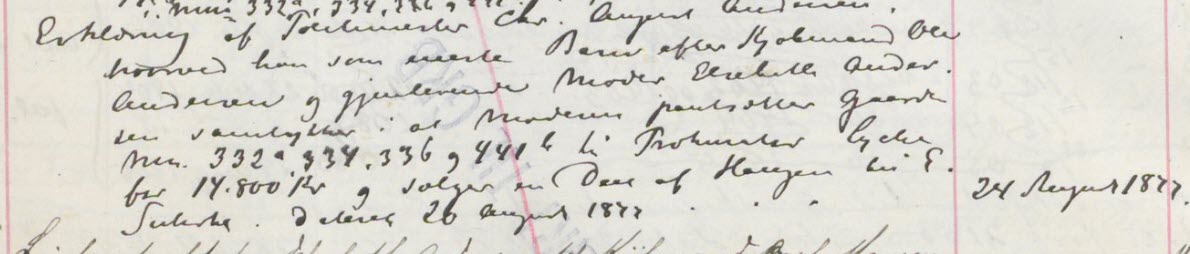 Num 332a, 334, 336 og
Erklæring af Toldmester Chr. August Andersen,
hvorved han som eneste Barn efter Kjøbmand Ole
Andersen og gjenlevende Moder Elisabeth Ander-
sen samtykker i at Moderen pantsætter Gaarden
Num. 332a, 334, 336 og 441b til Prokurator Lycke
for 14.800 Kr og sælger en Deel af Haugen til E.
Dateret 20 August 1877
24 August 1877.